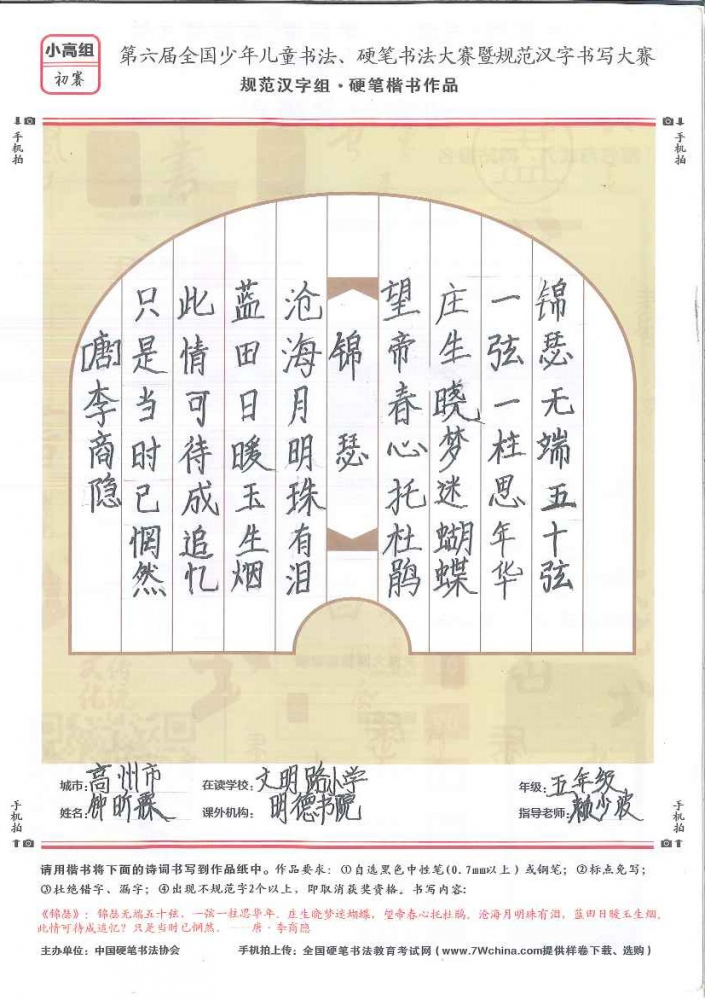 小高组
初赛
第六届全国少年儿童书法、硬笔书法大赛暨规范汉字书写大赛
规范汉字组·硬笔楷书作品
手机拍
手机拍
锦瑟无端五十弦
一弦一柱思年华
庄生晓梦迷蝴蝶
望帝春心托杜鹃
锦瑟
沧海月明珠有泪
蓝田日暖玉生烟
此情可待成追忆
只是当时已惘然
[唐]李商隐
城市:高州市 在读学校:文明路小学 年级:五年级
姓名:钟昕霖 课外机构:明德书院 指导老师:赖少波
手机拍
手机拍
请用楷书将下面的诗词书写到作品纸中。作品要求:①自选黑色中性笔(0.7mm以上)或钢笔;②标点免写;
③杜绝错字、漏字;④出现不规范字2个以上,即取消获奖资格。书写内容:
《锦瑟》:锦瑟无端五十弦,一弦一柱思华年。庄生晓梦迷蝴蝶,望帝春心托杜鹃。沧海月明珠有泪,蓝田日暖玉生烟。
此情可待成追忆?只是当时已惘然。——唐·李商隐
主办单位:中国硬笔书法协会 手机拍上传:全国硬笔书法教育考试网(www.7Wchina.com提供样卷下载、选购)